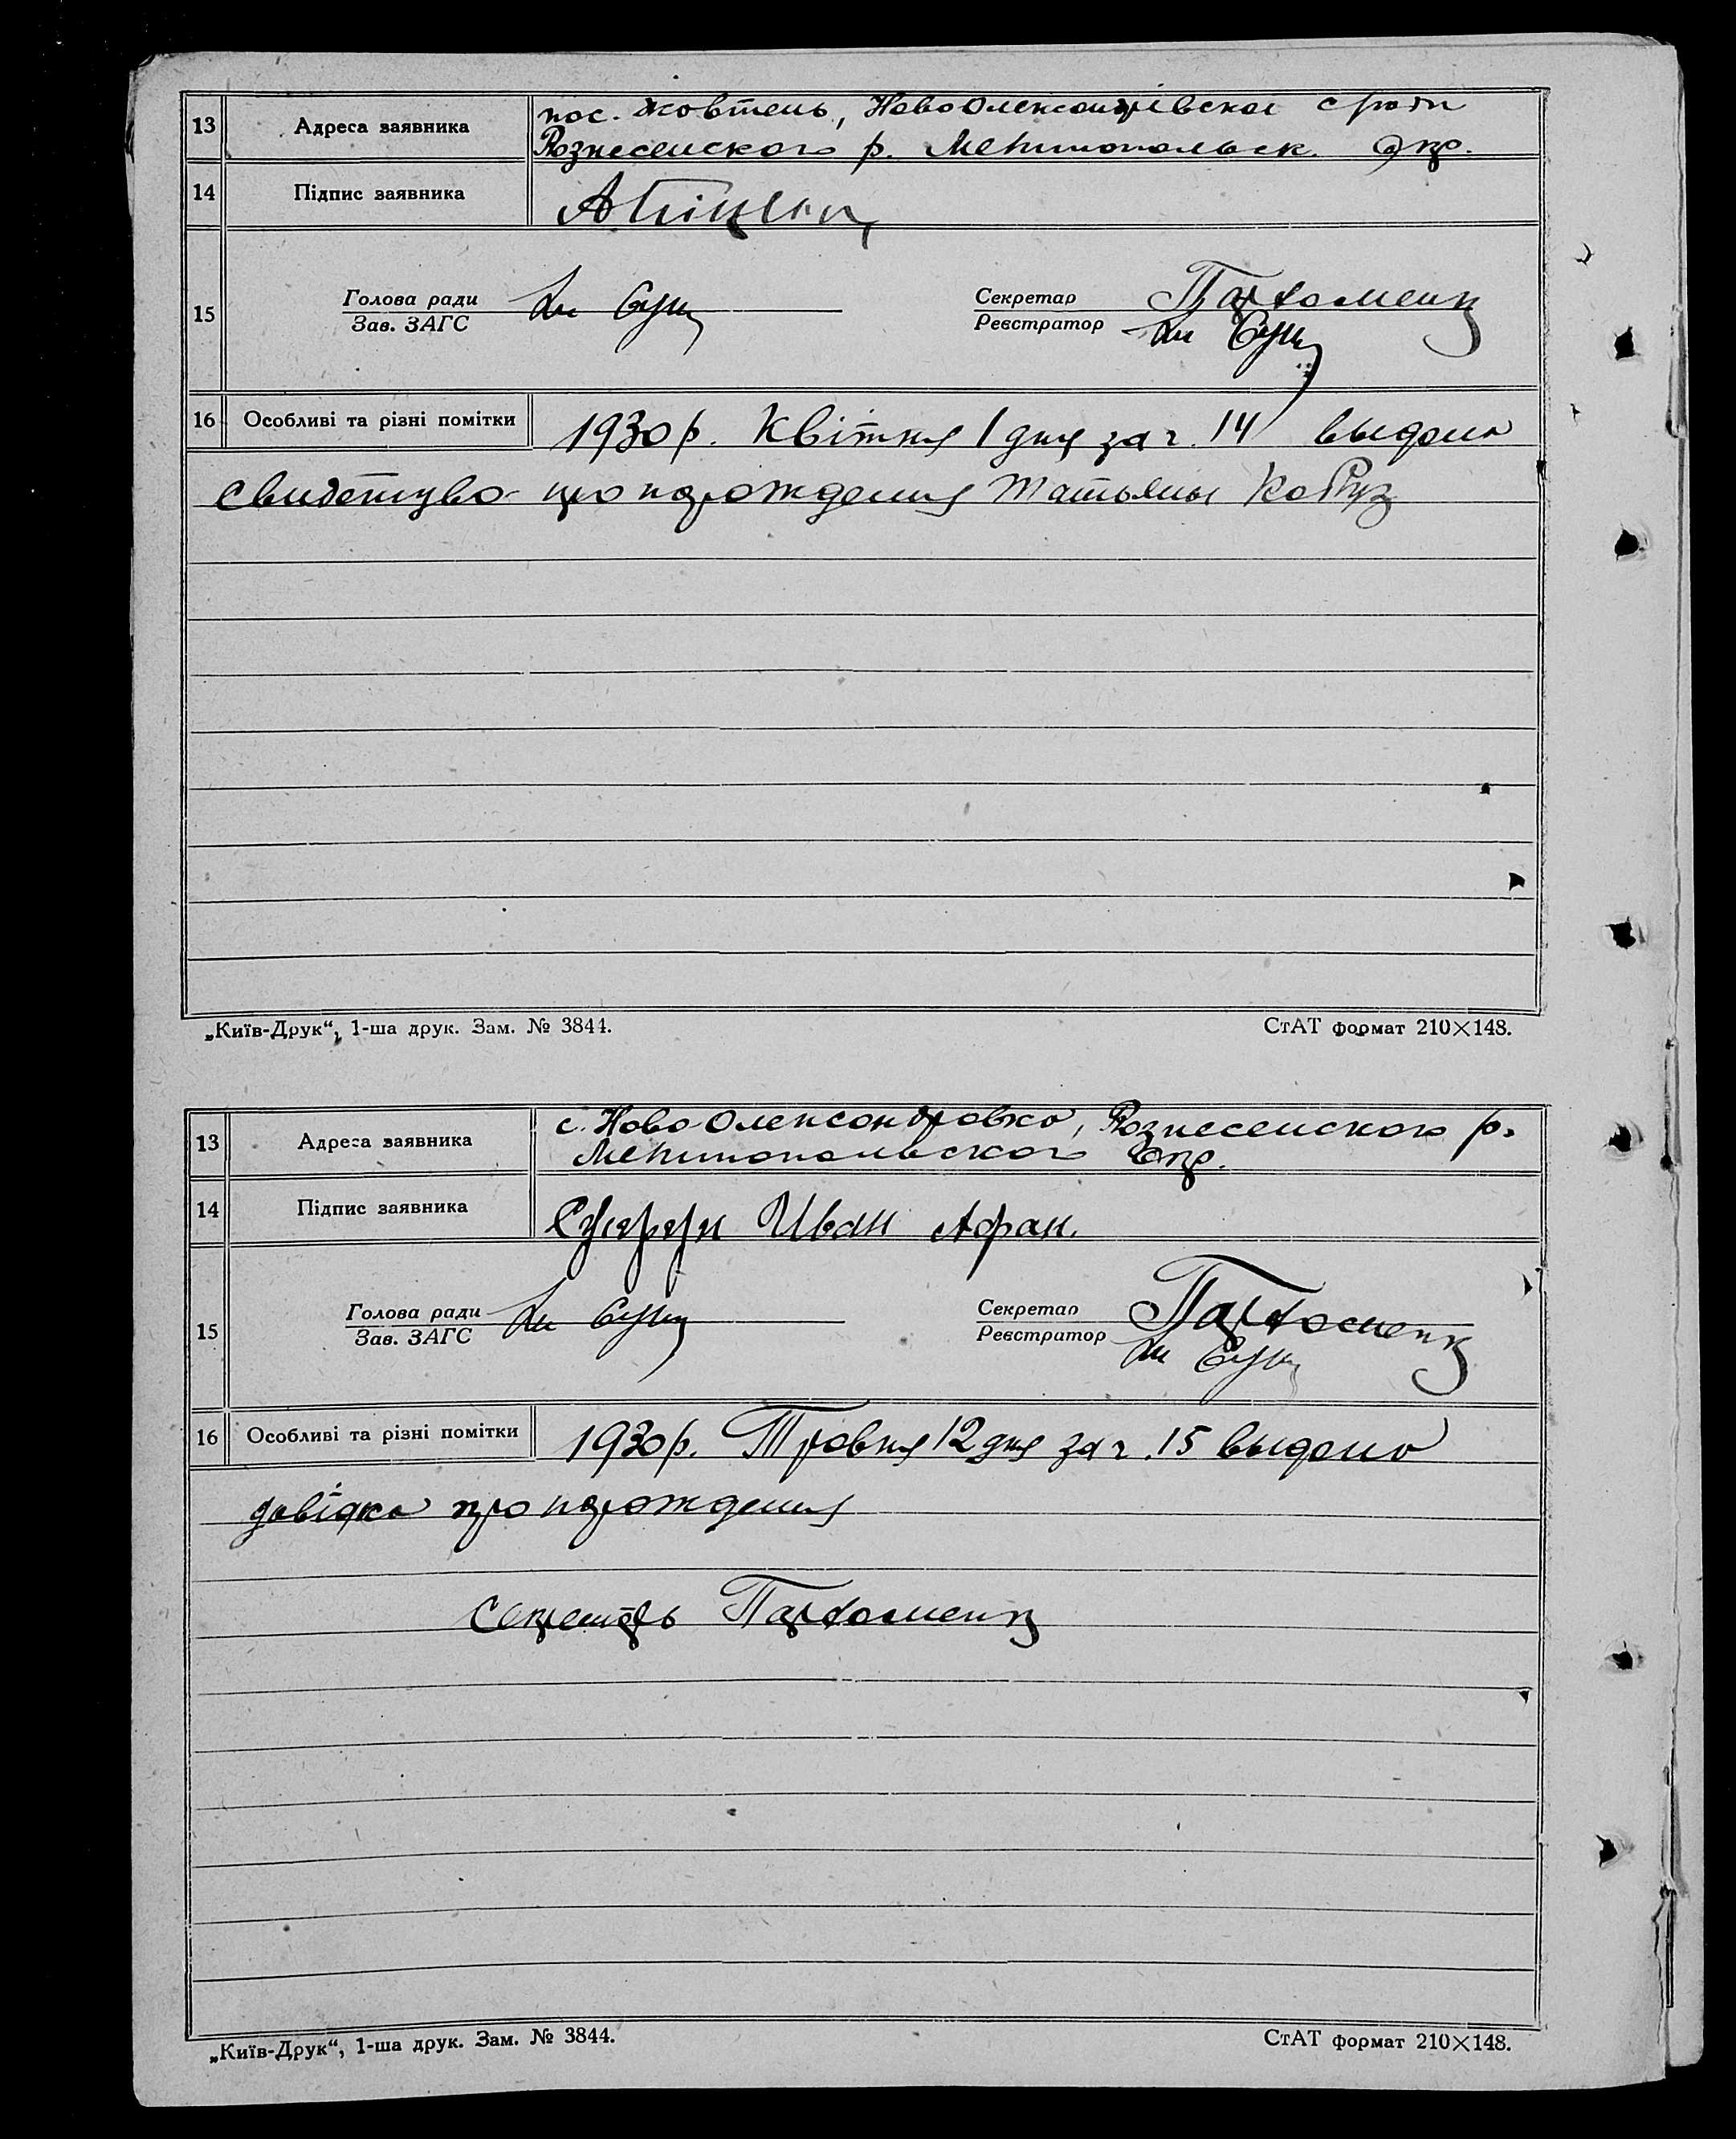 13 Адреса заявника пос. Жовтень, НовоОлександрівскої с ради
Вознесенского р. Мелитопольск. Окр.
14 Підпис заявника
15 Голова ради Секретар Пархоменко
Зав. ЗАГС Реєстратор
16 Особливі та різні помітки 1930 р. Квітня 1 дня за ч. 14 выдано
свидетцтво про нарождения Татьяны
„Київ-Друк“, 1-ша друк. Зам. № 3844. СтАТ формат 210×148.
13 Адреса заявника с. НовоОлександровка, Вознесенского р.
Мелитопольского Окр.
14 Підпис заявника Иван Афан.
15 Голова ради Секретар Пархоменко
Зав. ЗАГС Реєстратор
16 Особливі та різні помітки 1930 р. Травня 12 дня за ч. 15 выдано
довідка про нарождения
Секретарь Пархоменко
„Київ-Друк“, 1-ша друк. Зам. № 3844. СтАТ формат 210×148.